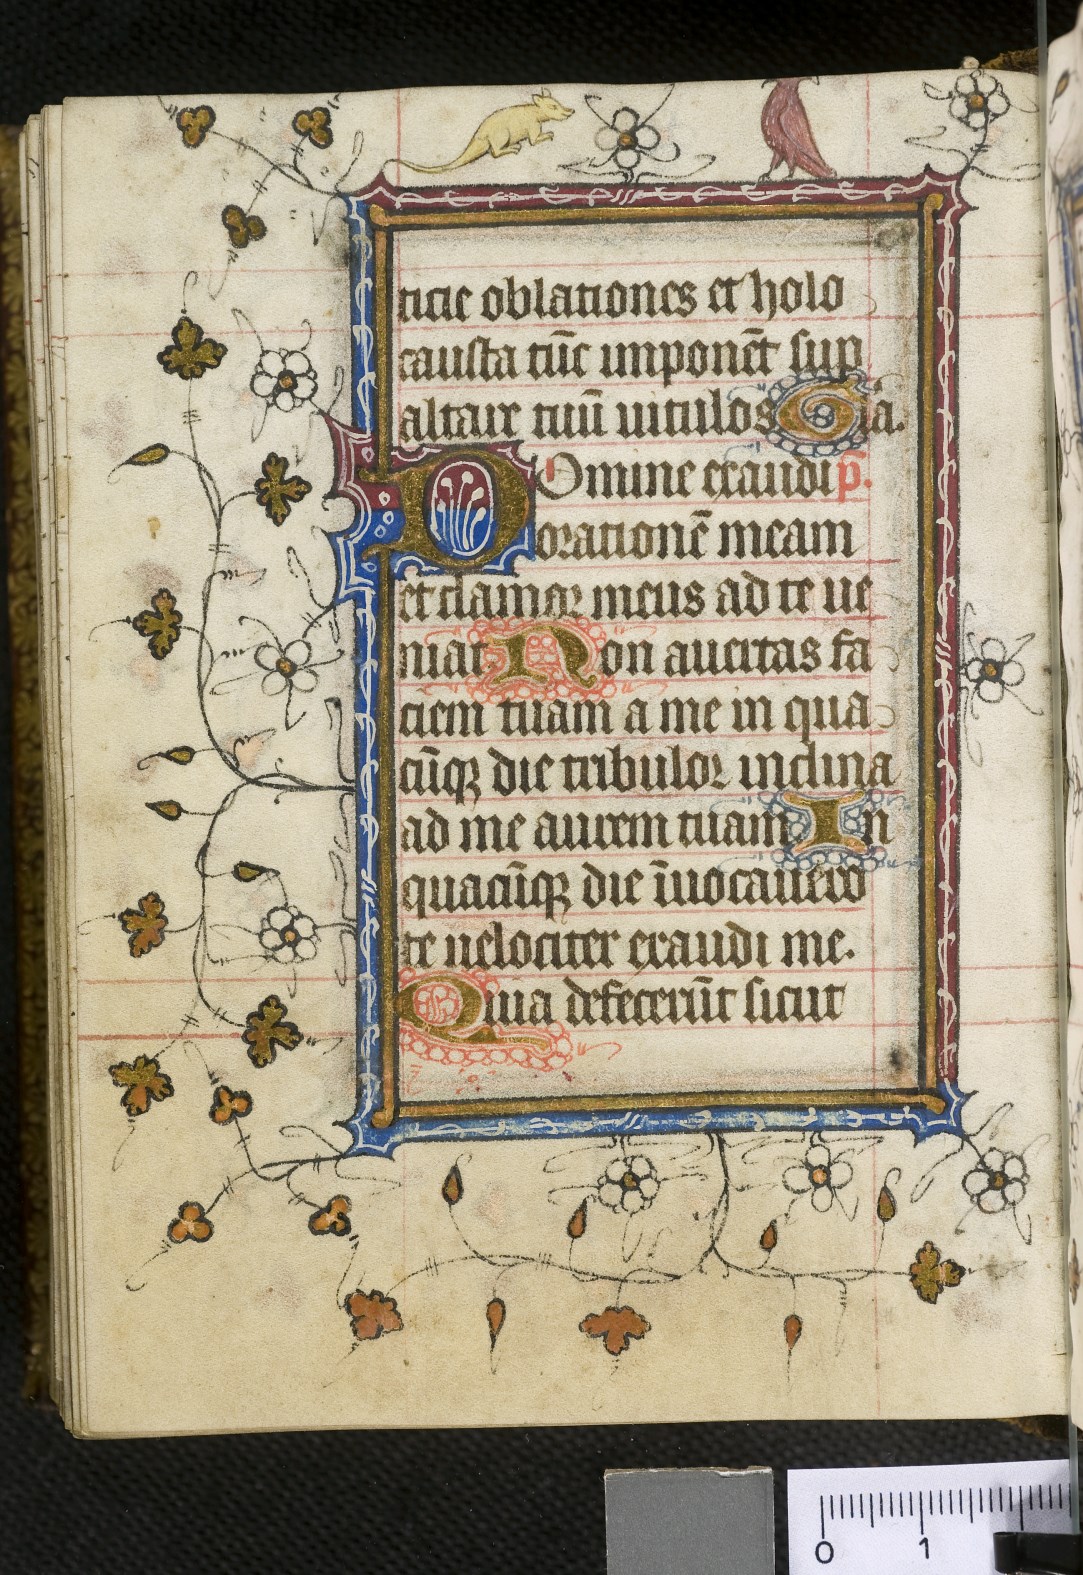 ticie oblationes et holo
causta tūc imponēt sup
altare tuū uitulos Gl̄a.
Domine exaudi p̄.
orationē meam
et clamor meus ad te ue
niat. Non auertas fa
ciem tuam a me in qua
cūqꝫ die tribulor inclina
ad me aurem tuam In
quacūqꝫ die īuocauero
te uelociter exaudi me.
Quia defecerūt sicut
0 1